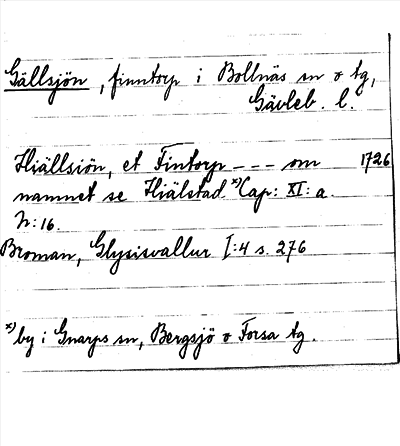 Gällsjön, finntorp i Bollnäs sn o tg,
Gävleb. l.
Hiällsiön, et Fintorp --- om 1726
namnet se Hiälstad. x) Cap: XI: a
n: 16.
Broman, Glysisvallur I:4 s. 276
x) by i Gnarps sn, Bergsjö o Forsa tg.